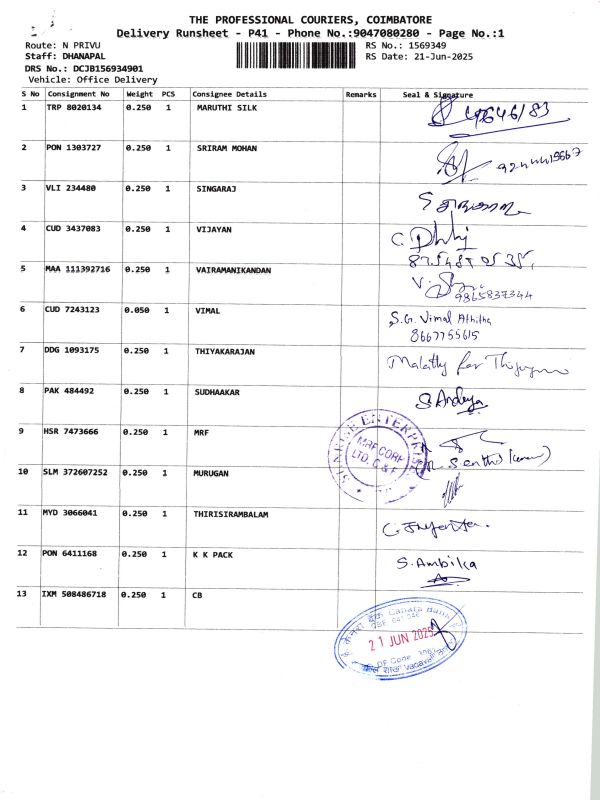 THE PROFESSIONAL COURIERS, COIMBATORE
Delivery Runsheet - P41 - Phone No.:9047080280 - Page No.:1
Route: N PRIVU
RS No.: 1569349
Staff: DHANAPAL
RS Date: 21-Jun-2025
DRS No.: DCJB156934901
Vehicle: Office Delivery
S No Consignment No Weight PCS Consignee Details Remarks Seal & Signature
1 TRP 8020134 0.250 1 MARUTHI SILK
2 PON 1303727 0.250 1 SRIRAM MOHAN
3 VLI 234480 0.250 1 SINGARAJ
4 CUD 3437083 0.250 1 VIJAYAN
5 MAA 111392716 0.250 1 VAIRAMANIKANDAN
9865837344
6 CUD 7243123 0.050 1 VIMAL S.G. Vimal Athitha
8667755615
7 DDG 1093175 0.250 1 THIYAKARAJAN Malathy for
8 PAK 484492 0.250 1 SUDHAAKAR
9 HSR 7473666 0.250 1 MRF
MRF CORP
LTD, C & F
10 SLM 372607252 0.250 1 MURUGAN
11 MYD 3066041 0.250 1 THIRISIRAMBALAM
12 PON 6411168 0.250 1 K K PACK S. Ambika
13 IXM 508486718 0.250 1 CB
Canara Bank
21 JUN 2025